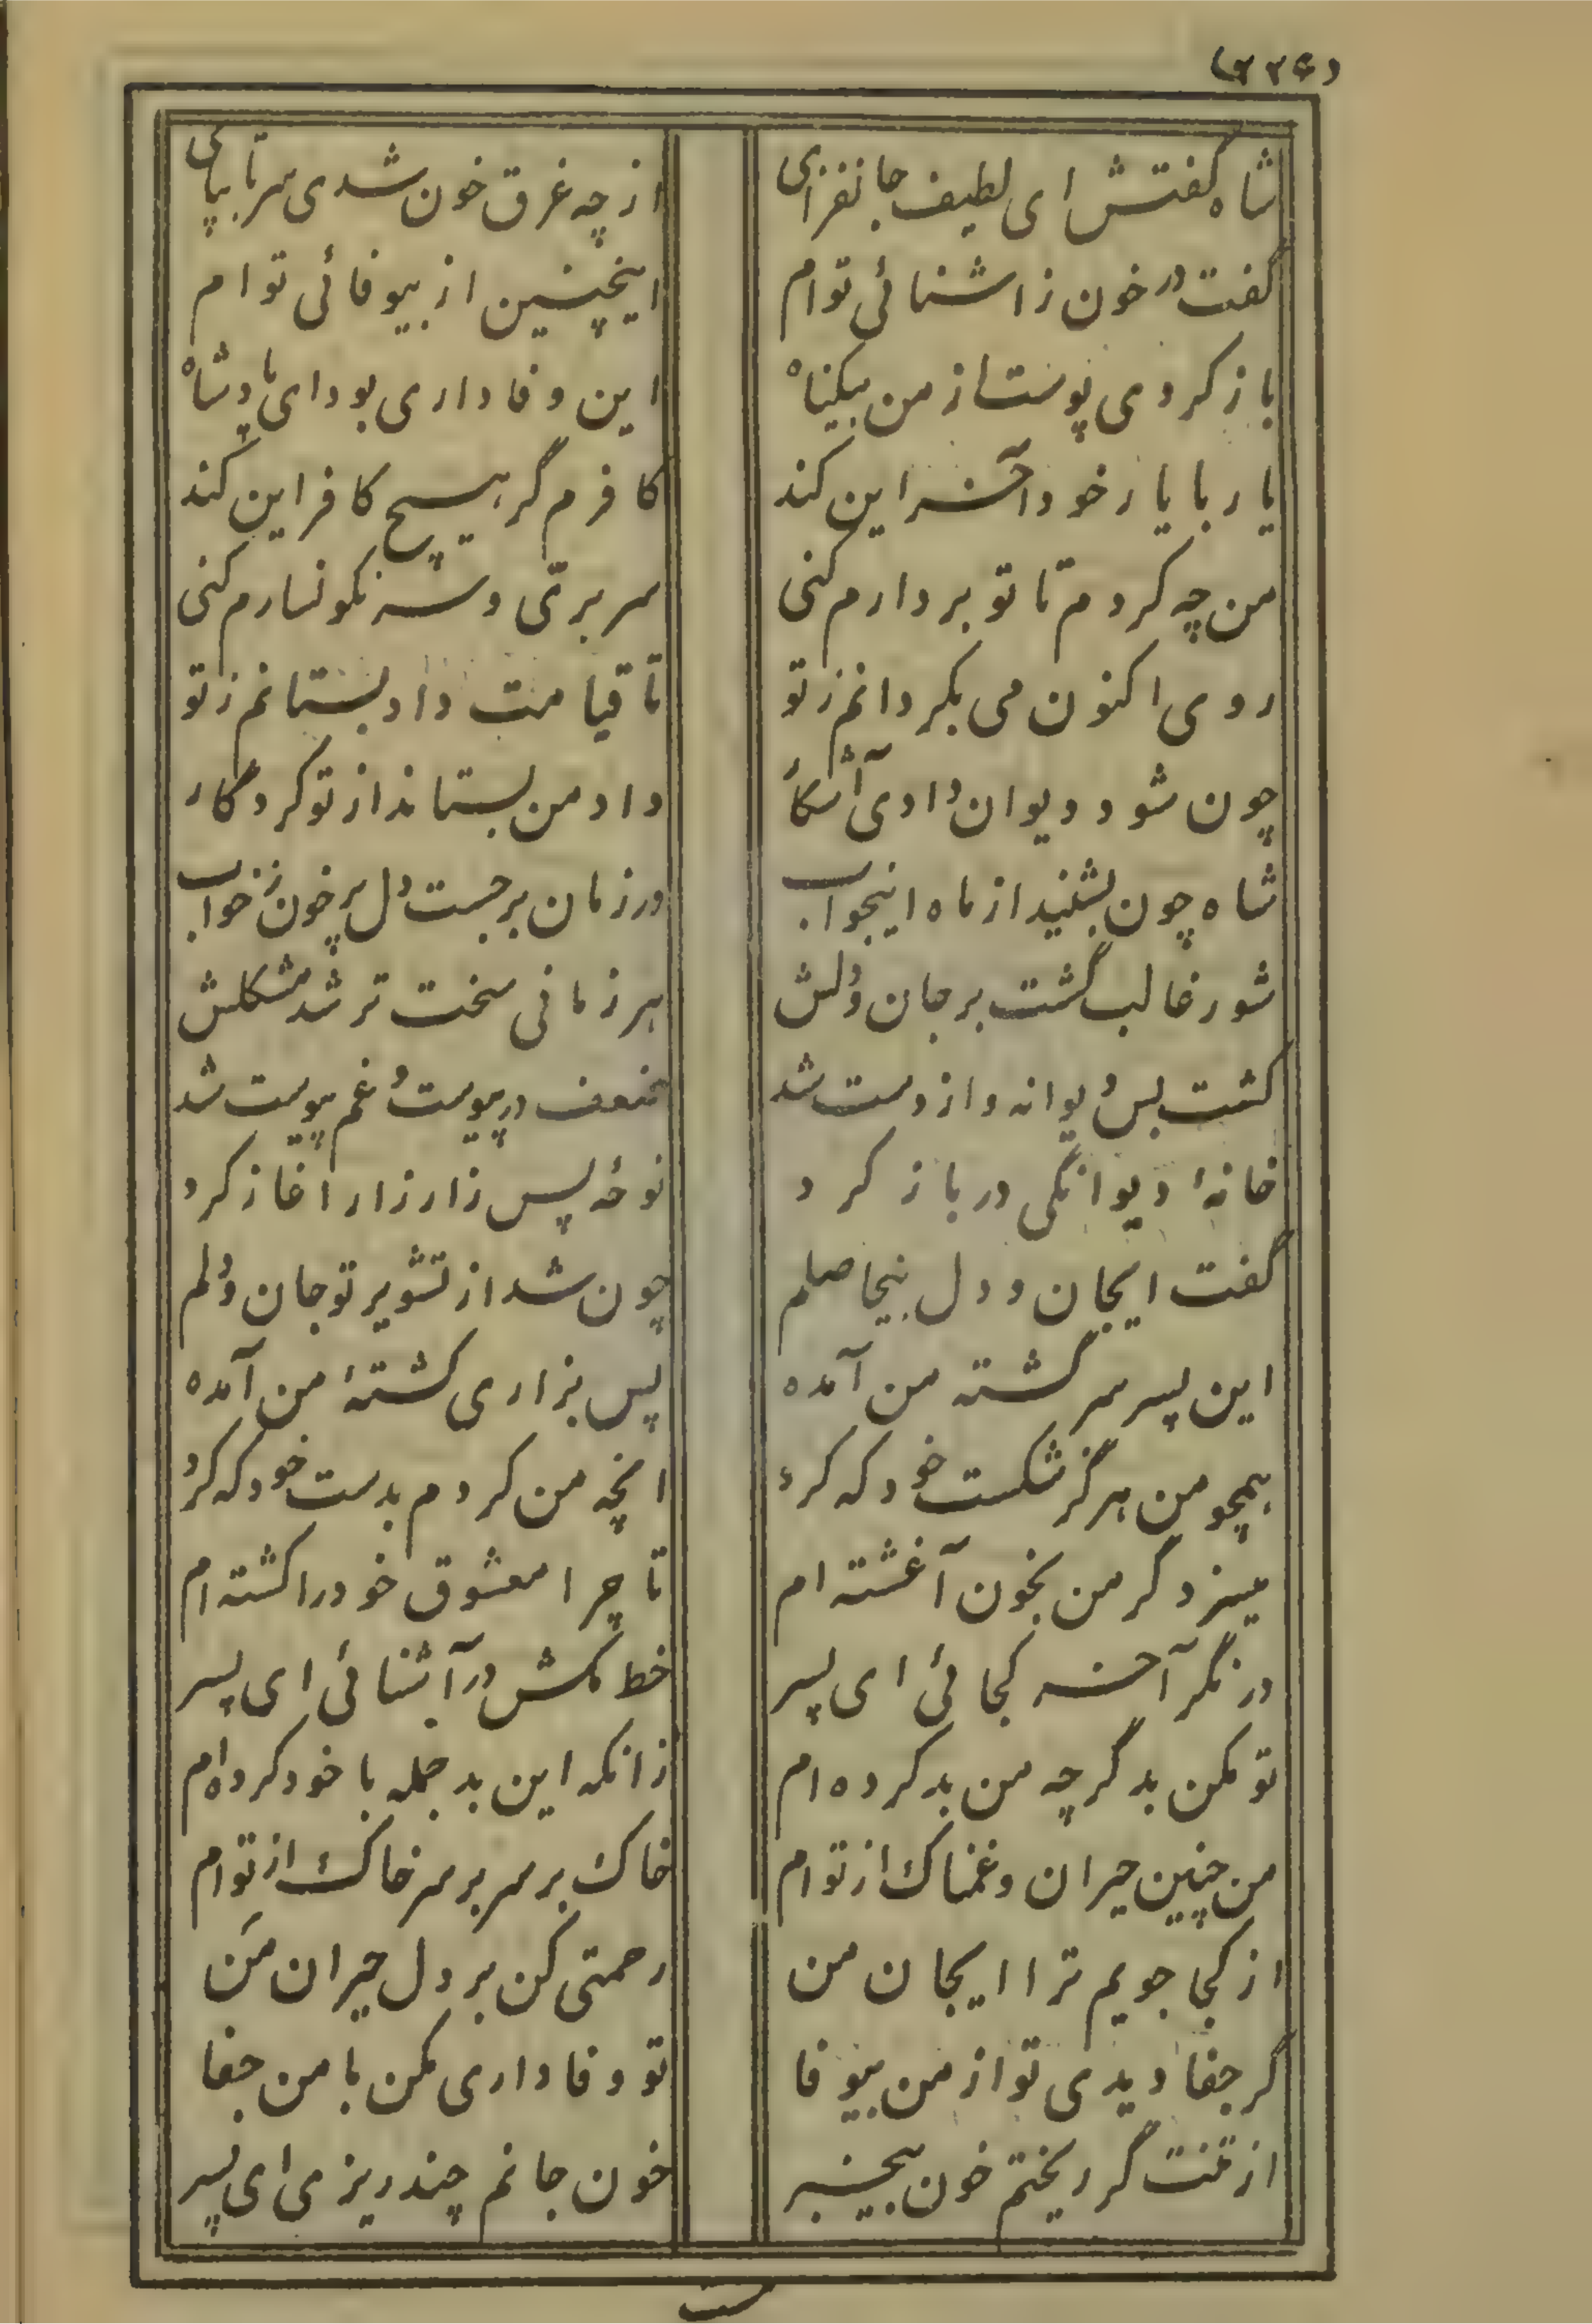 (۲۲۶)
شاه گفتش ای لطیف جانفزای از چه غرق خون شدی سر تا بپای
گفت در خون ز اشنائی توام اینچنین از بیوفائی توام
باز کردی پوست از من بیگناه این وفاداری بود ای پادشاه
یار با یار خود آخر این کند کافرم گر هیچ کافر این کند
من چه کردم تا تو بر دارم کنی سر بری و سرنگونسارم کنی
روی اکنون می بگردانم ز تو تا قیامت داد بستانم ز تو
چون شود دیوان دادی آشکار داد من بستاند از تو کردگار
شاه چون بشنید از ماه اینجواب در زمان برجست دل پر خون ز خواب
شور غالب گشت بر جان و دلش هر زمانی سخت تر شد مشکلش
گشت بس دیوانه و از دست شد ضعف در پیوست و غم پیوست شد
خانهٔ دیوانگی در باز کرد نوحهٔ پس زار زار اغاز کرد
گفت ایجان و دل بیحاصلم چون شد از تشویر تو جان و دلم
این پسر سرگشته من آمده پس بزاری کشتهٔ من آمده
همچو من هرگز شکست خود که کرد انچه من کردم بدست خود که کرد
میسزد گر من بخون آغشته ام تا چرا معشوق خود را کشته ام
در نگر آخر کجائی ای پسر خط مکش در آشنائی ای پسر
تو مکن بد گرچه من بد کرده ام زانکه این بد جمله با خود کرده ام
من چنین حیران و غمناک از توام خاک بر سر بر سر خاک از توام
از کجا جویم ترا ایجان من رحمتی کن بر دل حیران من
گر جفا دیدی تو از من بیوفا تو وفاداری مکن با من جفا
از تنت گر ریختم خون بیخبر خون جانم چند ریزی ای پسر